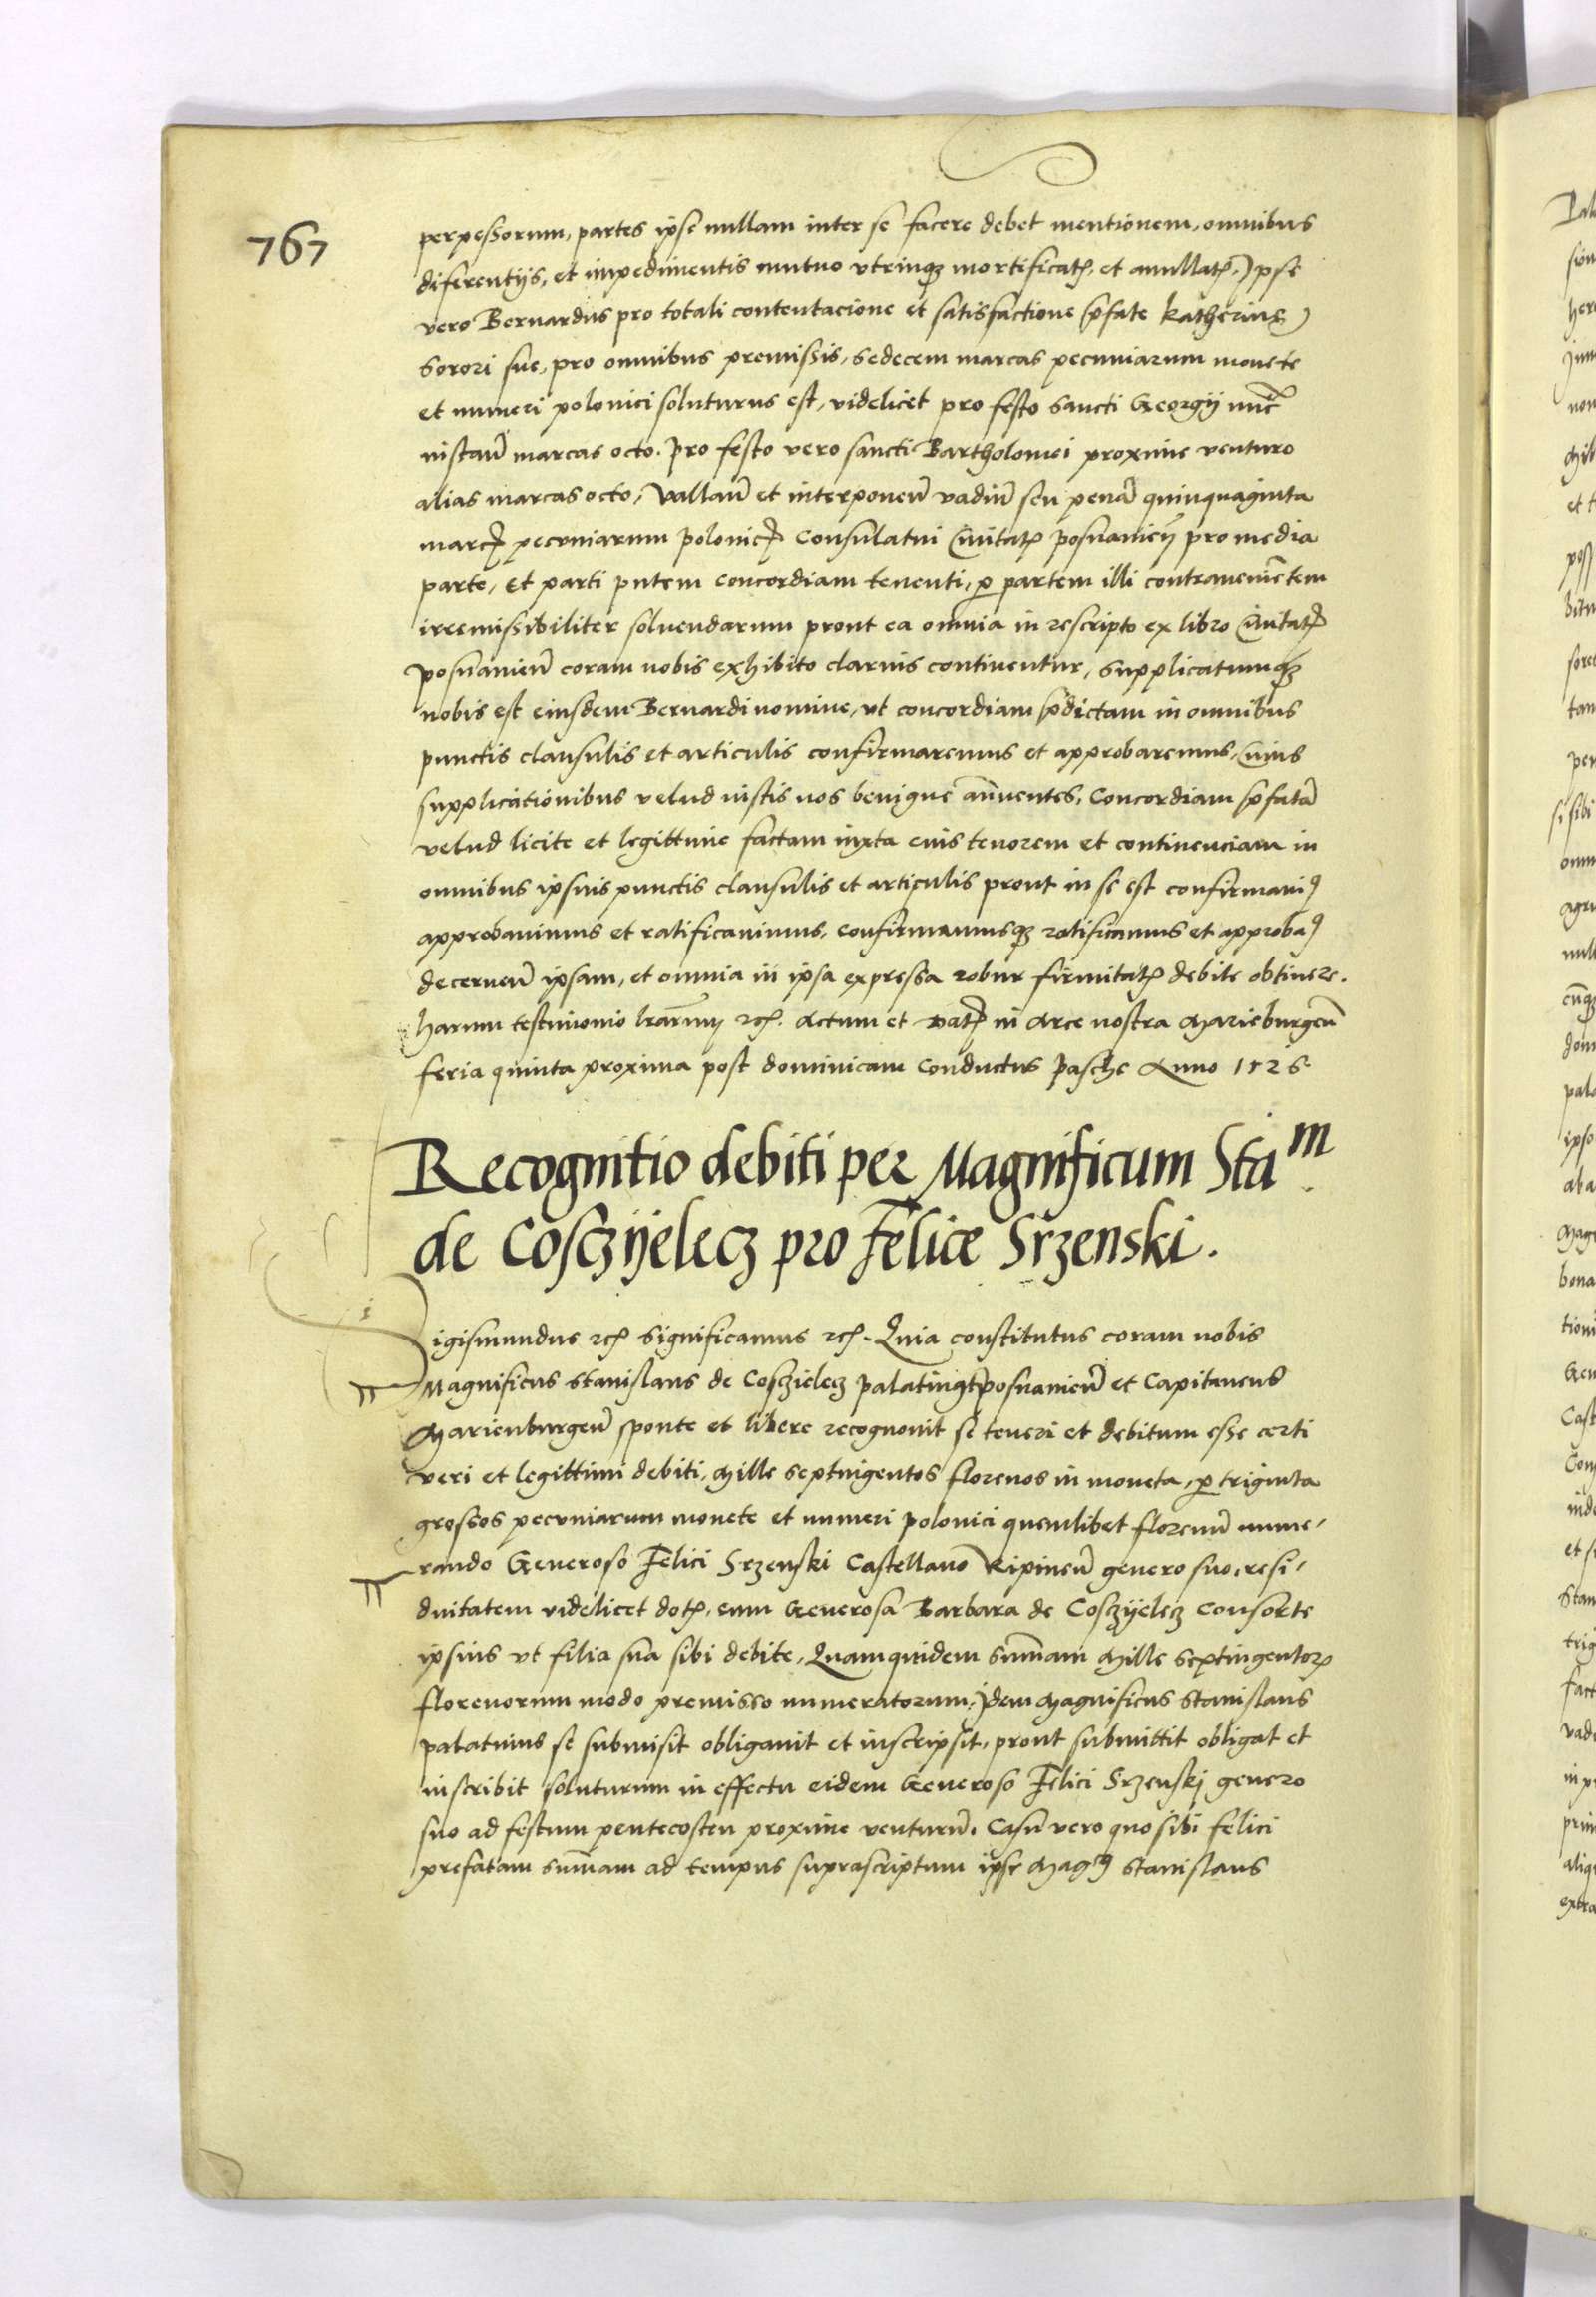 767
perpessorum, partes ipse nullam inter se facere debet mentionem, omnibus
diferentijs, et impedimentis mutuo vtrinqȝ mortificatꝭ, et annullatꝭ, Ipse
vero Bernardus pro totali contentacione et satisfactione p̃fate Katherine
Sorori sue, pro omnibus premissis, sedecem marcas pecuniarum monete
et numeri polonici soluturus est, videlicet pro festo Sancti Georgij nūc
instañ marcas octo. Pro festo vero sancti Bartholomei proxime venturo
alias marcas octo, Vallañ et interponeñ vadiū seu penā quinquaginta
marcꝭ pecuniarum polonicꝭ Consulatui Ciuitatꝭ Posnanieñ pro media
parte, et parti pñtem concordiam tenenti, ꝑ partem illi contraueniētem
irremissibiliter soluendarum prout ea omnia in rescripto ex libro Ciuitatꝭ
Posnanieñ coram nobis exhibito clarius continentur, Supplicatumqȝ
nobis est eiusdem Bernardi nomine, vt concordiam p̃dictam in omnibus
punctis clausulis et articulis confirmaremus et approbaremus, Cuius
supplicationibus velud iustis nos benigne añuentes, Concordiam p̃fatā
velud licite et legittime factam iuxta eius tenorem et continenciam in
omnibus ipsius punctis clausulis et articulis prout in se est confirmauiꝰ
approbauimus et ratificauimus, Confirmamusqȝ ratificamus et approbaꝰ
decerneñ ipsam, et omnia in ipsa expressa robur firmitatꝭ debite obtinere.
harum testimonio lr̃arum rcꝭ. Actum et Datꝭ in Arce nostra Marieburgeñ
feria quinta proxima post dominicam Conductus Pasche Anno 1526.
Recognitio debiti per Magnificum Staᵐ
de Cosczÿelecz pro Felice Srzenski.
Sigismundus rcꝭ Significamus rcꝭ. Quia constitutus coram nobis
Magnificus Stanislaus de Cosczielecz palatinꝰ Posnanieñ et Capitaneus
Marienburgeñ sponte et libere recognouit se teneri et debitum esse certi
veri et legittimi debiti, Mille septuigentos florenos in moneta, ꝑ triginta
grossos pecuniarum monete et numeri polonici quemlibet florenū nume,
rando Generoso Felici Srzenski Castellano Ripineñ genero suo, resi,
duitatem videlicet dotꝭ, cum Generosa Barbara de Cosczÿelecz Consorte
ipsius vt filia sua sibi debite, Quamquidem sum̃am Mille septingentorꝭ
florenorum modo premisso numeratorum, Idem Magnificus Stanislaus
palatinus se submisit obligauit et inscripsit, prout submittit obligat et
inscribit soluturum in effectu eidem Generoso Felici Srzenskj genero
suo ad festum pentecosten proxime venturū. Casu vero quo sibi felici
prefatam sum̃am ad tempus suprascriptum ipse Magcꝰ Stanislaus